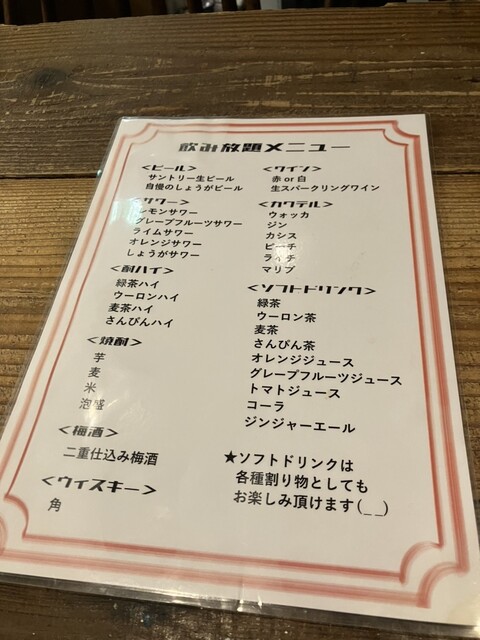 飲み放題メニュー
<ビール>
サントリー生ビール
自慢のしょうがビール
<サワー>
レモンサワー
グレープフルーツサワー
ライムサワー
オレンジサワー
しょうがサワー
<酎ハイ>
緑茶ハイ
ウーロンハイ
麦茶ハイ
さんぴんハイ
<焼酎>
芋
麦
米
泡盛
<梅酒>
二重仕込み梅酒
<ウィスキー>
角
<ワイン>
赤 or 白
生スパークリングワイン
<カクテル>
ウォッカ
ジン
カシス
ピーチ
ライチ
マリブ
<ソフトドリンク>
緑茶
ウーロン茶
麦茶
さんぴん茶
オレンジジュース
グレープフルーツジュース
トマトジュース
コーラ
ジンジャーエール
★ソフトドリンクは
各種割り物としても
お楽しみ頂けます(_ _)